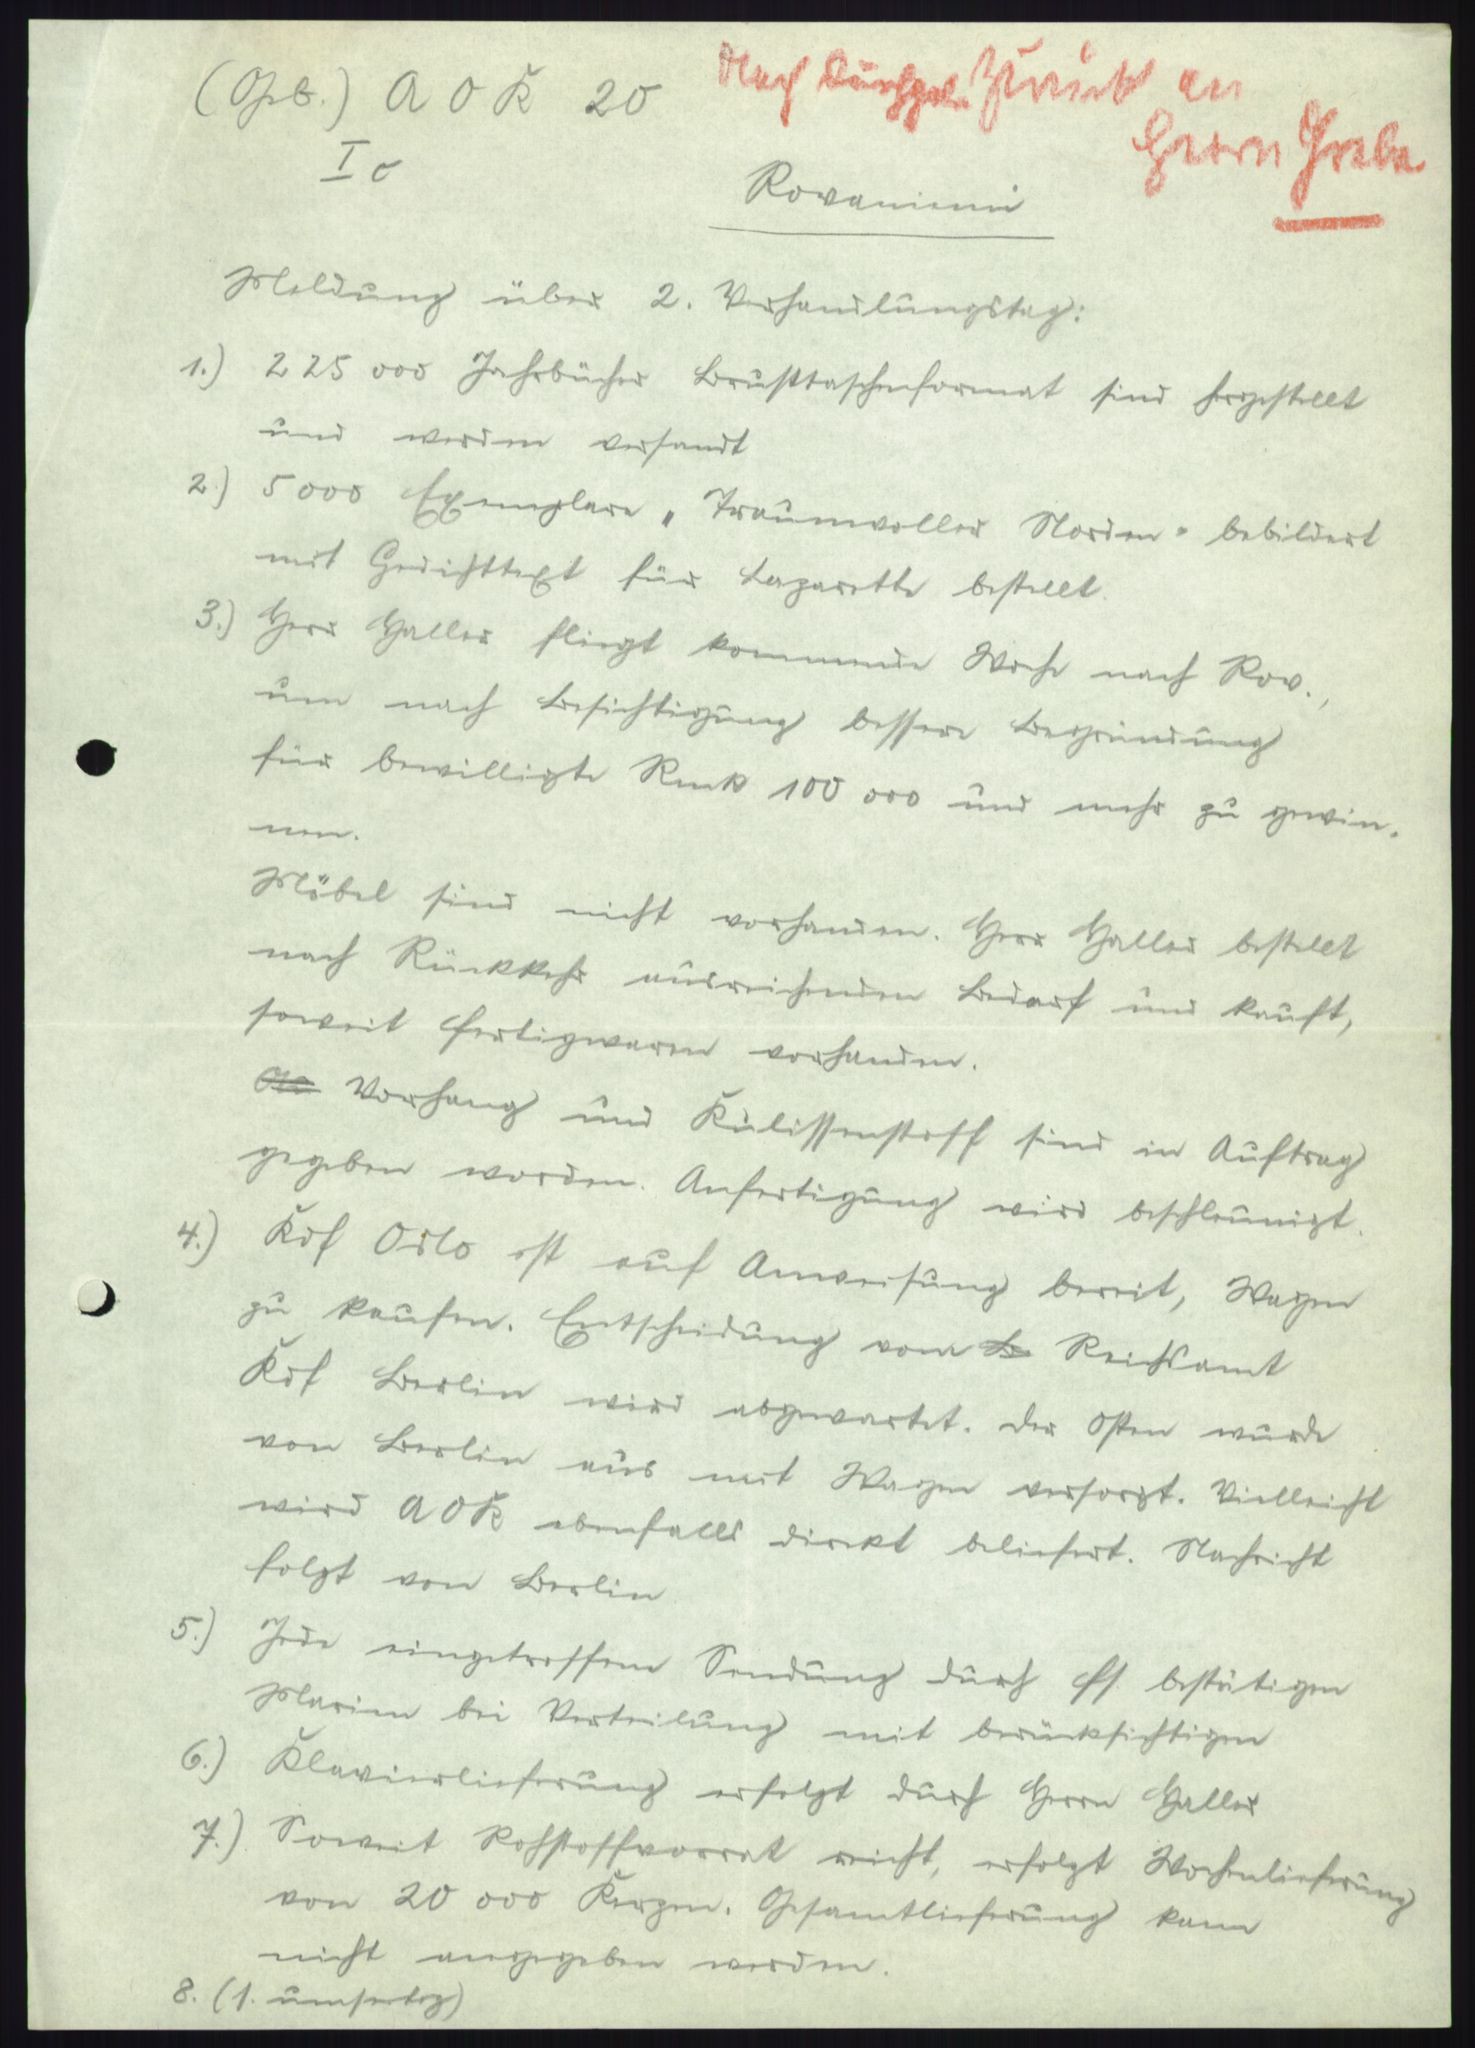 (Geb.) A O K 20
Nach Durchgabe zurück an
Herrn Grabe
I c
Rovaniemi
Meldung über 2. Verhandlungstag:
1.) 225 000 Jahrbücher Brusttaschenformat sind hergestellt
und werden versandt
2.) 5000 Exemplare „Traumvoller Norden" bebildert
mit Gedichttext für Lazarette bestellt.
3.) Herr Haller fliegt kommende Woche nach Rov.,
um nach Besichtigung bessere Begründung
für bewilligte Rmk 100 000 und mehr zu gewin-
nen.
Möbel sind nicht vorhanden. Herr Haller bestellt
nach Rückkehr ausreichenden Bedarf und kauft,
soweit Fertigwaren vorhanden.
Vorhang und Kulissenstoff sind in Auftrag
gegeben worden. Anfertigung wird beschleunigt.
4.) Kdf Oslo ist auf Anweisung bereit, Wagen
zu kaufen. Entscheidung vom Reichsamt
Kdf Berlin wird abgewartet. Der Osten wurde
von Berlin aus mit Wagen versorgt. Vielleicht
wird AOK ebenfalls direkt beliefert. Nachricht
folgt von Berlin
5.) Jede eingetroffene Sendung durch FS. bestätigen
Marine bei Verteilung mit berücksichtigen
6.) Klavierlieferung erfolgt durch Herrn Haller
7.) Soweit Rohstoffvorrat reicht, erfolgt Wochenlieferung
von 20 000 Kerzen. Gesamtlieferung kann
nicht angegeben werden.
8. (1. umseitig)